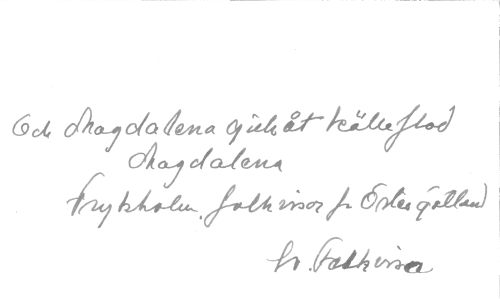 Och Magdalena gick åt källeflod
Magdalena
Frykholm, folkvisor fr Östergötland
Sv. Folkvisor